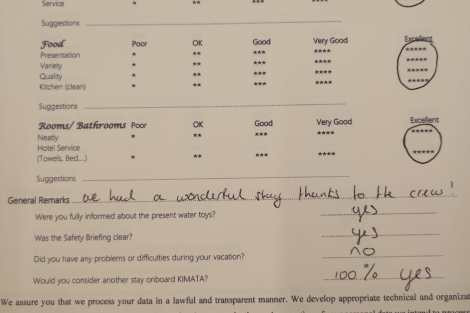 Service * ** *** ****
Suggestions
Food Poor OK Good Very Good Excellent
Presentation * ** *** **** *****
Variety * ** *** **** *****
Quality * ** *** **** *****
Kitchen (clean) * ** *** **** *****
Suggestions
Rooms/ Bathrooms Poor OK Good Very Good Excellent
Neatly * ** *** **** *****
Hotel Service
(Towels, Bed....) * ** *** **** *****
Suggestions
General Remarks we had a wonderful stay thanks to the crew!
Were you fully informed about the present water toys? yes
Was the Safety Briefing clear? yes
Did you have any problems or difficulties during your vacation? no
Would you consider another stay onboard KIMATA? 100 % yes
We assure you that we process your data in a lawful and transparent manner. We develop appropriate technical and organizat